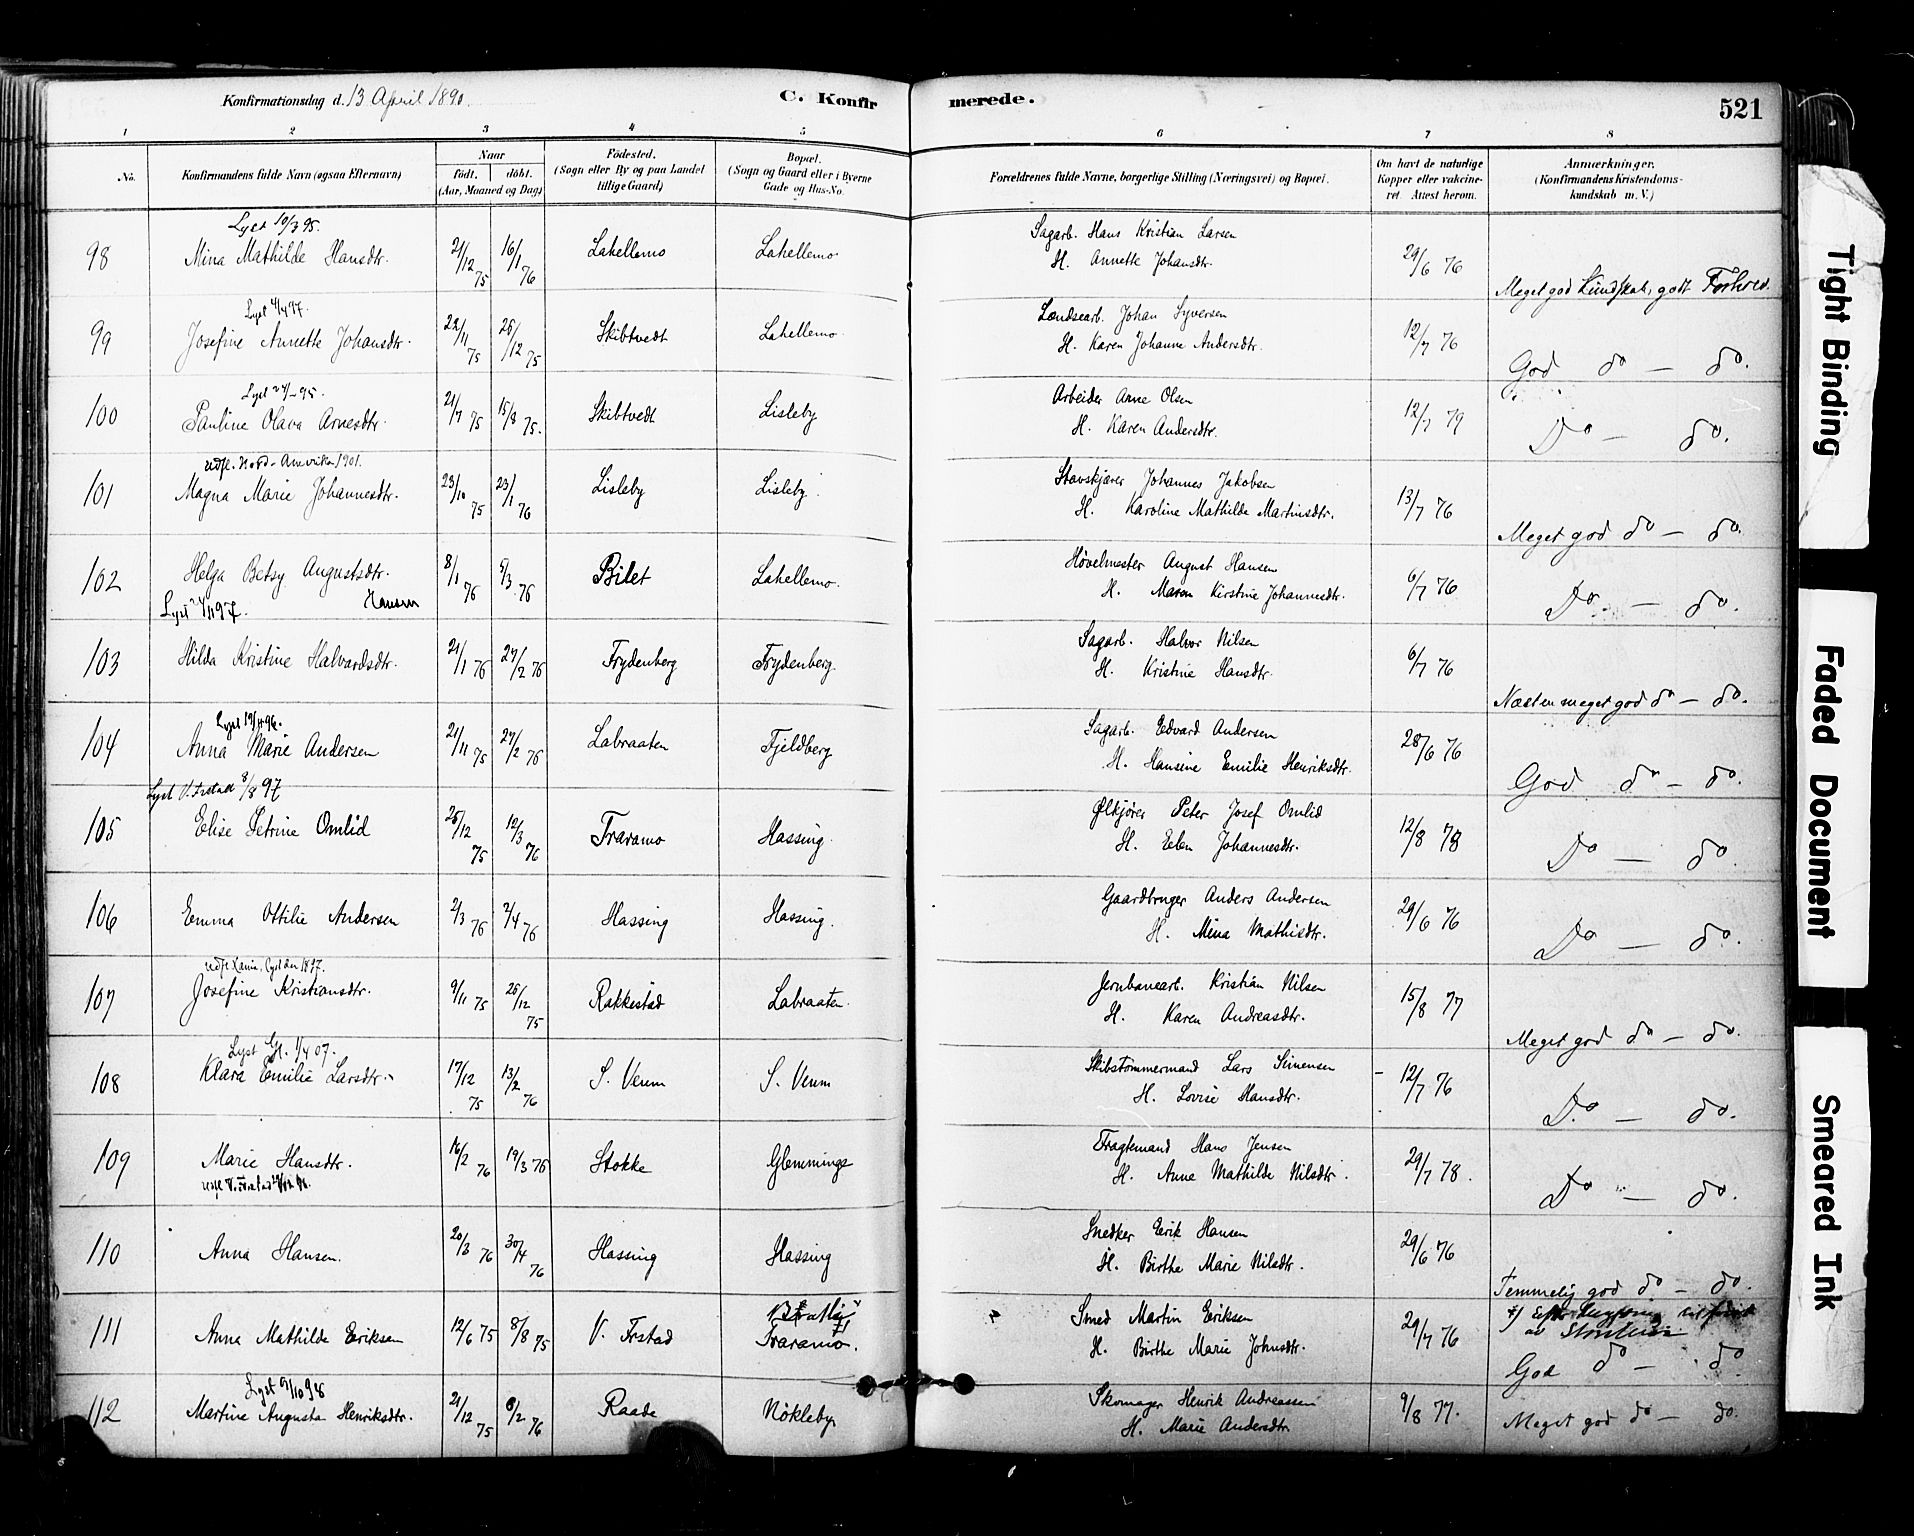 Konfirmationsdag d. 13 April 1890.
C. Konfirmerede.
521
1 2 3 4 5 6 7 8
No.
Konfirmandens fulde Navn (ogsaa Efternavn)
Naar
födt. döbt.
(Aar, Maaned og Dag)
Födested.
(Sogn eller By og paa Landet
tillige Gaard)
Bopæl.
(Sogn og Gaard eller i Byerne
Gade og Hus-No.
Forældrenes fulde Navne, borgerlige Stilling (Næringsvei) og Bopæl.
Om havt de naturlige
Kopper eller vakcine-
ret. Attest herom.
Anmærkninger.
(Konfirmandens Kristendoms-
kundskab m. V.)
Lyst 10/3 95.
98 Mina Mathilde Hansdtr. 21/12 75 16/1 76 Lahellemo Lahellemo Sagarb. Hans Kristian Larsen
H. Annette Johansdtr. 29/6 76 Meget god Kundskab, godt Forhold.
Lyst 4/4 97.
99 Josefine Annette Johansdtr. 22/11 75 26/12 75 Skibtvedt Lahellemo Landsearb. Johan Syversen
H. Karen Johanne Andersdtr. 12/7 76 God do — do.
100 Pauline Olava Arnesdtr. 21/7 75 15/8 75. Skibtvedt Lisleby Arbeider Arne Olsen
H. Karen Andersdtr. 12/7 79 Do — do.
udfl. Nord-Amerika 1901.
101 Magna Marie Johannesdtr. 23/10 75 23/1 76 Lisleby Lisleby. Stavskjærer Johannes Jakobsen
H. Karoline Mathilde Martinsdtr. 13/7 76 Meget god do — do.
102 Helga Betsy Augustsdtr. 8/1 76 5/3 76 Bilet Lahellemo. Høvelmester August Hansen
Lyst 24/11 97. Hansen H. Maren Kirstine Johannesdtr. 6/7 76 Do. — do.
103 Hilda Kristine Halvardsdtr. 21/1 76 27/2 76 Frydenberg Frydenberg. Sagarb. Halvor Nilsen
H. Kristine Hansdtr. 6/7 76 Næsten meget god do — do.
Lyst 19/4 96.
104 Anna Marie Andersen 21/11 75 27/2 76 Labraaten Fjeldberg Sagarb. Edvard Andersen
H. Hansine Emilie Henriksdtr. 28/6 76 God do — do.
Lyst V. Frstad 8/8 97
105 Elise Petrine Omlid 26/12 75 12/3 76 Traramo Hassing. Ølkjører Peter Josef Omlid
H. Elen Johannesdtr. 12/8 78 Do — do.
106 Emma Ottilie Andersen 2/3 76 2/4 76 Hassing Hassing. Gaardbruger Anders Andersen
H. Mina Mathisdtr. 29/6 76 Do — do.
107 Josefine Kristiansdtr. 9/11 75 26/12 75 Rakkestad Labraaten. Jernbanearb. Kristian Nilsen
H. Karen Andreasdtr. 15/8 77 Meget god do — do.
Lyst Gl. 1/4 07.
108 Klara Emilie Larsdtr. 17/12 75 13/2 76 S. Verum S. Verum Skibstømmermand Lars Simensen
H. Lovise Hansdtr. 12/7 76 Do. — do.
109 Marie Hansdtr. 16/2 76 19/3 76 Stokke Glemminge Fragtemand Hans Jensen
H. Anne Mathilde Nilsdtr. 29/7 78. Do — do.
110 Anna Hansen. 20/3 76 30/4 76 Hassing Hassing Snedker Eerik Hansen
H. Birthe Marie Nilsdtr. 29/6 76 Temmelig god do — do.
111 Anna Mathilde Eriksen 12/6 75 8/8 75 V. Frstad Traramo. Smed Martin Eriksen
H. Birthe Marie Johnsdtr. 29/7 76 God do — do
Lyst 9/10 98
112 Martine Augusta Henriksdtr. 21/12 75 8/2 76 Raade Nökleby Skomager Henrik Andreassen
H. Marie Andersdtr. 9/8 77. Meget god do — do.
Tight Binding
Faded Document
Smeared Ink